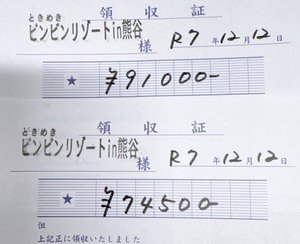 領収証
ときめき
ビンビンリゾートin熊谷
様 R7年12月12日
★ ¥91000-
領収証
ときめき
ビンビンリゾートin熊谷
様 R7年12月12日
★ ¥74500-
但
上記正に領収いたしました